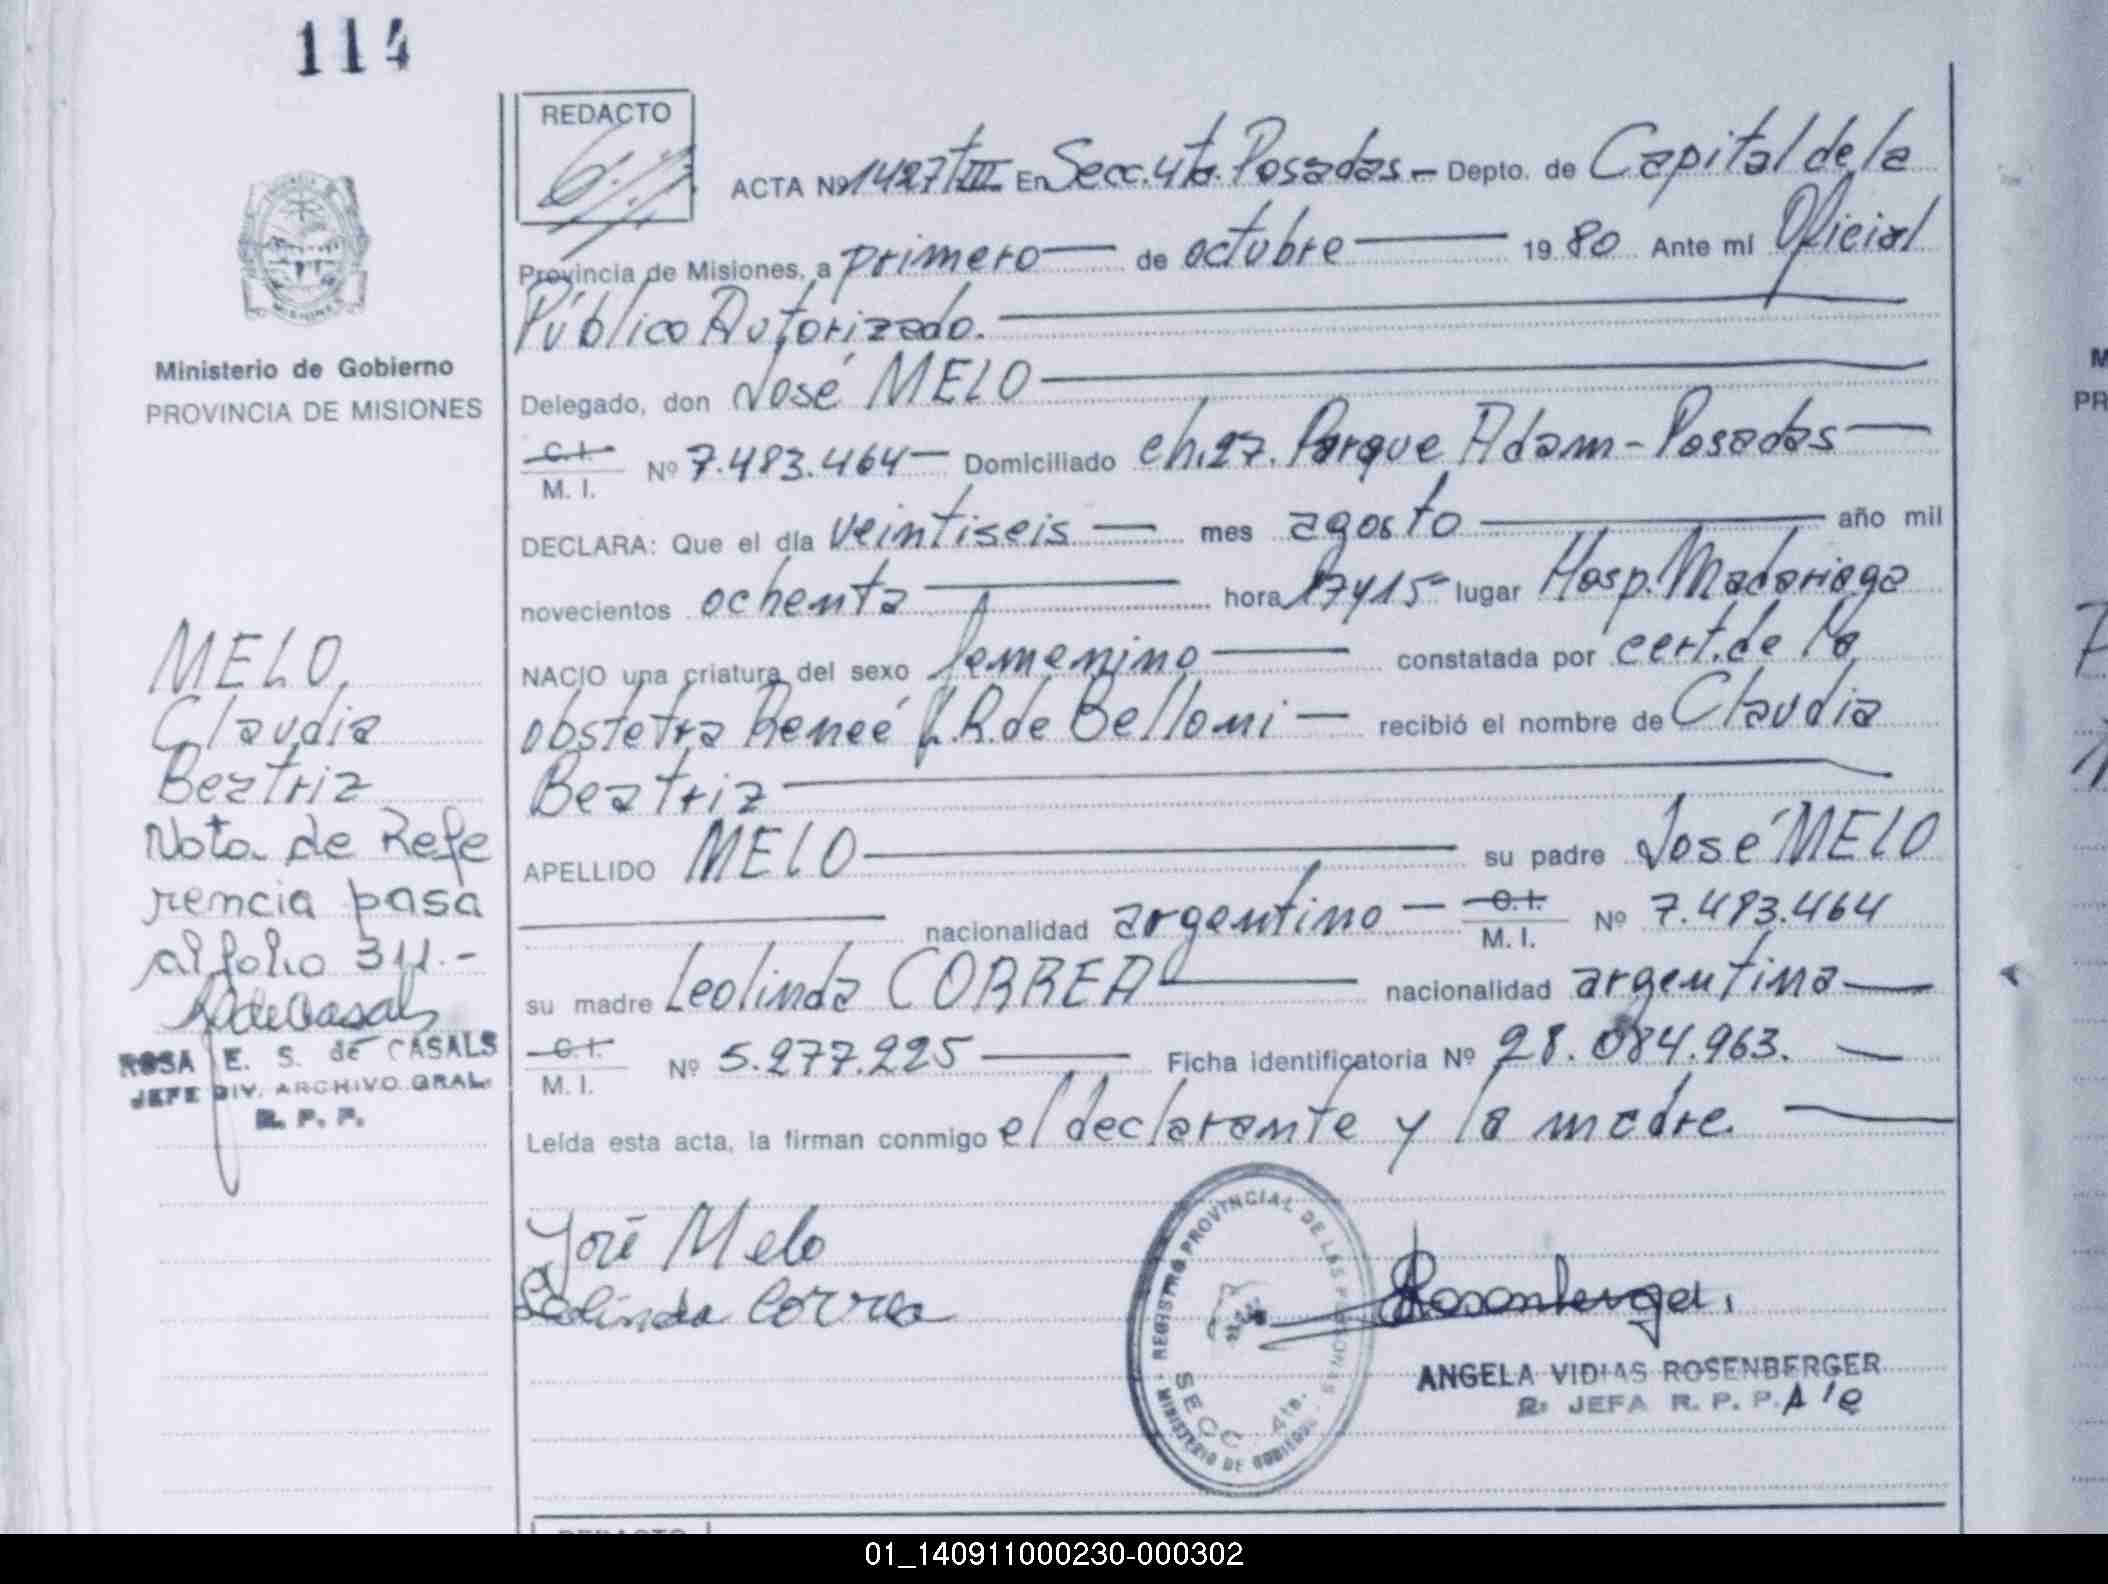 114
REDACTO
ACTA Nº 1427 tIII En Secc. 4ta. Posadas.- Depto. de Capital de la
Provincia de Misiones, a primero de octubre 1980 Ante mí Oficial
Público Autorizado.
Delegado, don José MELO
C. I.
M. I.
Nº 7.483.464 Domiciliado ch. 27. Parque Adam - Posadas
DECLARA: Que el día veintiseis mes agosto año mil
novecientos ochenta hora 17 y 15 lugar Hosp. Madariaga
NACIO una criatura del sexo femenino constatada por cert. de la
obstetra Reneé R. de Belloni recibió el nombre de Claudia
Beatriz
APELLIDO MELO su padre José MELO
nacionalidad argentino.- C. I. M. I. Nº 7.483.464
su madre Leolinda CORREA nacionalidad argentina
C. I.
M. I.
Nº 5.277.225 Ficha identificatoria Nº 28.084.963.
Leída esta acta, la firman conmigo el declarante y la madre.
José Melo
Leolinda Correa
Rosenberger
ANGELA VIDIAS ROSENBERGER
2º JEFA R. P. P. A/C
REGISTRO PROVINCIAL DE LAS PERSONAS
MINISTERIO DE GOBIERNO
SECC 4ta.
Ministerio de Gobierno
PROVINCIA DE MISIONES
MELO,
Claudia
Beatriz
Nota de Refe
rencia pasa
al folio 311.-
R de Casals
ROSA E. S. de CASALS
JEFE DIV. ARCHIVO GRAL.
R. P. P.
REDACTO
M
PR
01_140911000230-000302